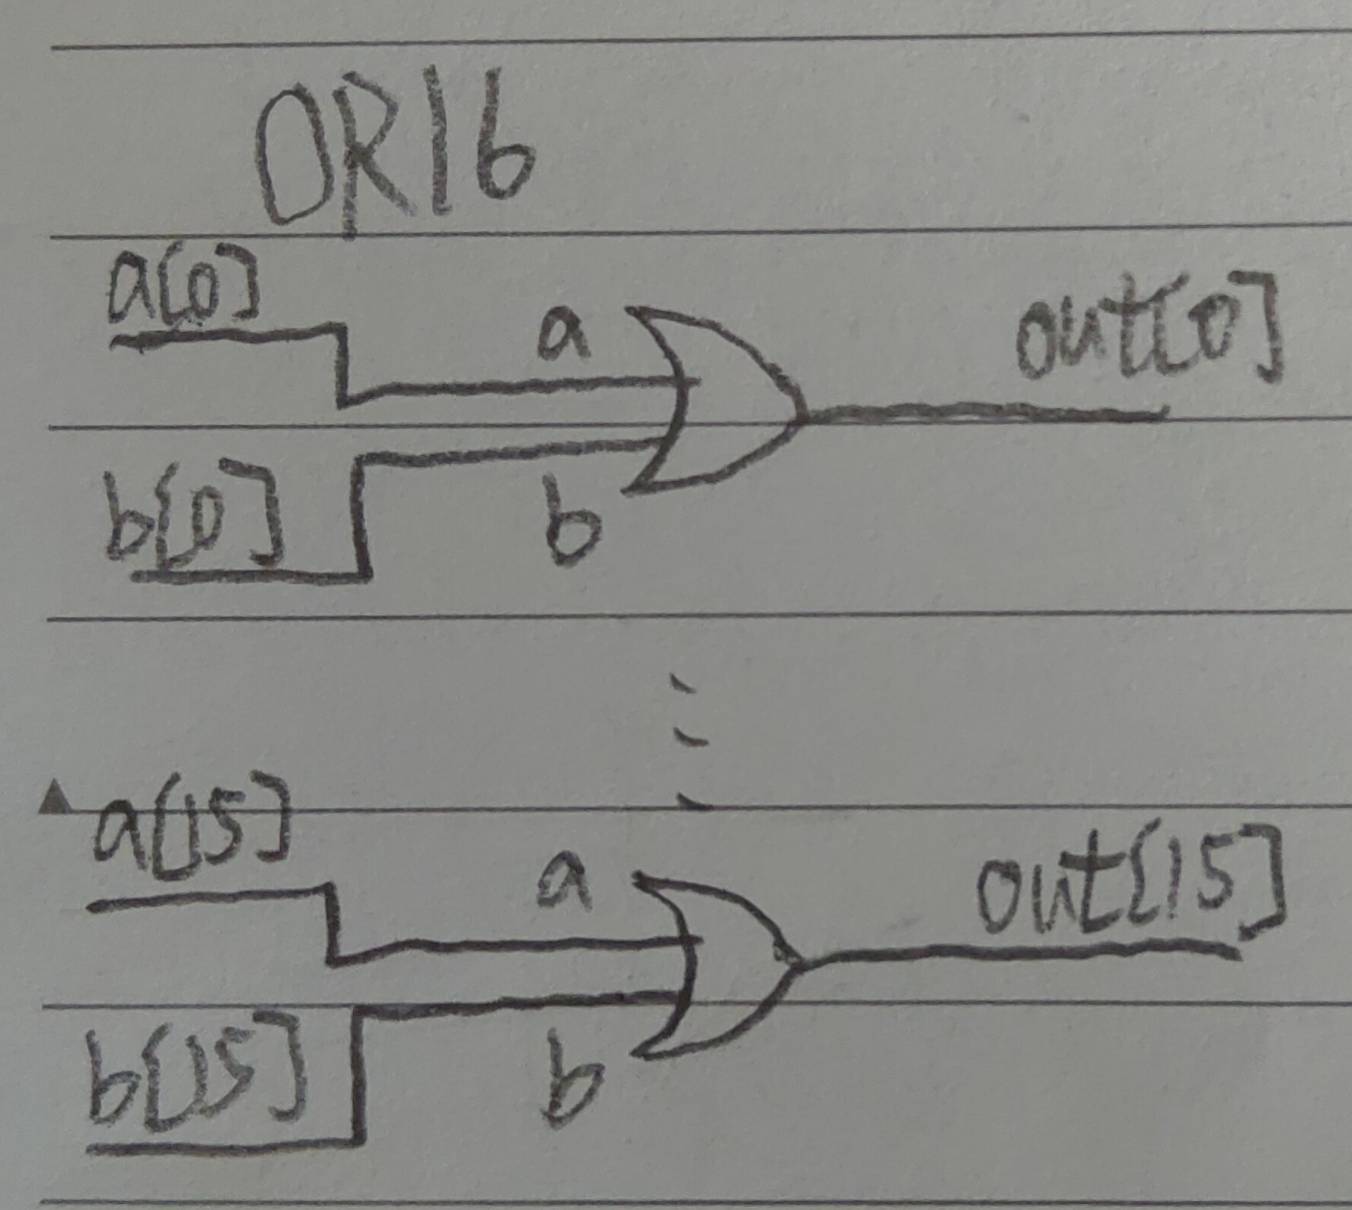 OR16
a[0]
a
out[0]
b[0]
b
a[15]
a
out[15]
b[15]
b